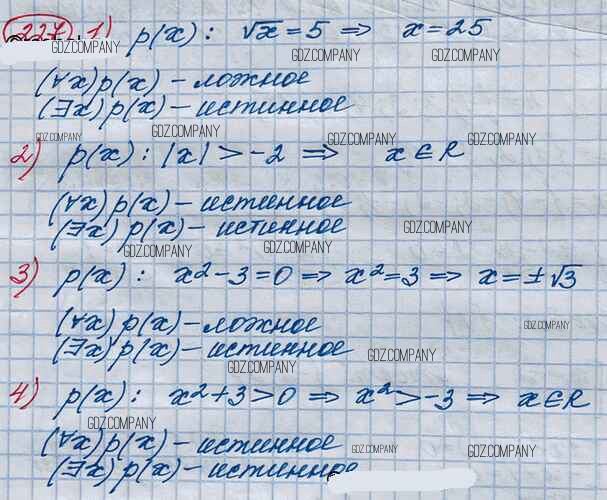 227 1) p(x): √x = 5 => x = 25
GDZ.COMPANY GDZ.COMPANY GDZ.COMPANY
(∀x)p(x) – ложное
(∃x)p(x) – истинное
GDZ.COMPANY GDZ.COMPANY GDZ.COMPANY GDZ.COMPANY
2) p(x): |x| > -2 => x ∈ R
(∀x) p(x) – истинное
(∃x) p(x) – истинное
GDZ.COMPANY GDZ.COMPANY GDZ.COMPANY
3) p(x): x² - 3 = 0 => x² = 3 => x = ±√3
(∀x) p(x) – ложное
GDZ.COMPANY
(∃x) p(x) – истинное
GDZ.COMPANY GDZ.COMPANY
4) p(x): x² + 3 > 0 => x² > -3 => x ∈ R
GDZ.COMPANY
(∀x)p(x) – истинное
GDZ.COMPANY GDZ.COMPANY
(∃x)p(x) – истинное